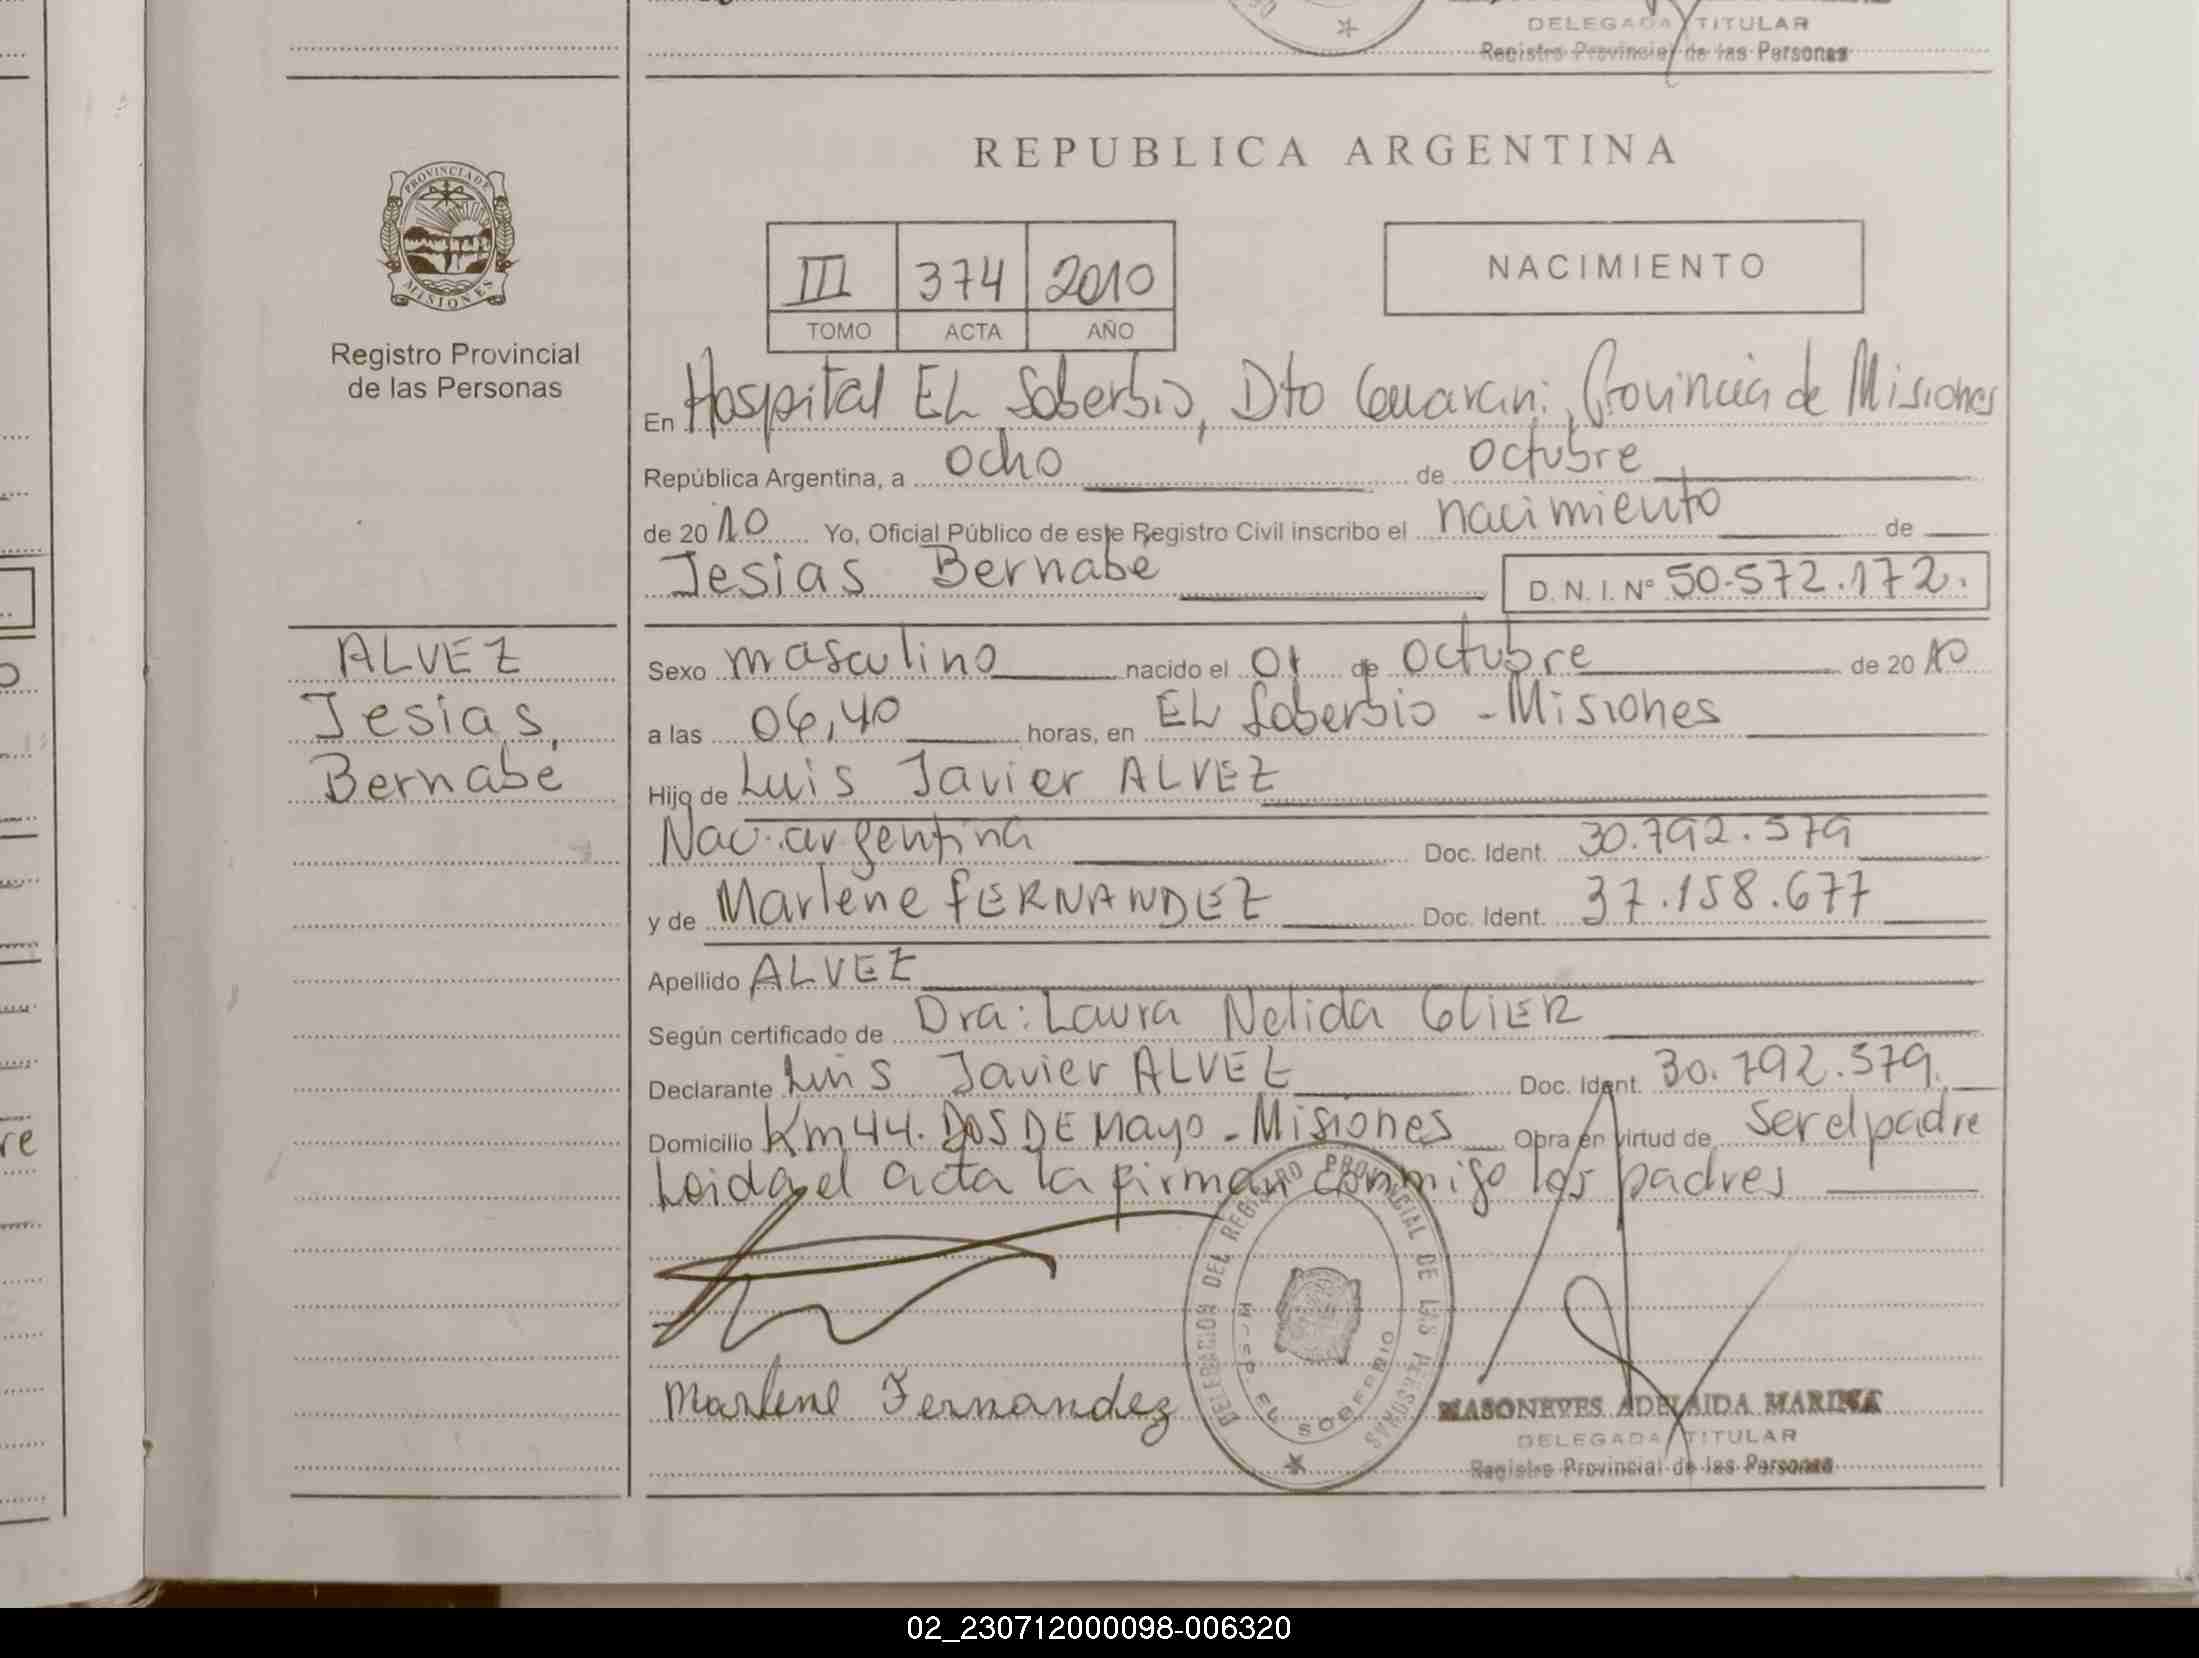 DELEGADA TITULAR
Registro Provincial de las Personas
REPUBLICA ARGENTINA
PROVINCIA DE
MISIONES
Registro Provincial
de las Personas
III 374 2010
TOMO ACTA AÑO
NACIMIENTO
En Hospital EL Soberbio, Dto Guarani, Provincia de Misiones
República Argentina, a ocho de octubre
de 2010 Yo, Oficial Público de este Registro Civil inscribo el nacimiento de
Jesias Bernabé D. N. I. Nº 50.572.172.
ALVEZ
Jesias,
Bernabé
Sexo masculino nacido el 01 de octubre de 2010
a las 06,40 horas, en EL Soberbio - Misiones
Hijo de Luis Javier ALVEZ
Nac. argentina Doc. Ident. 30.792.579
y de Marlene FERNANDEZ Doc. Ident. 37.158.677
Apellido ALVEZ
Según certificado de Dra: Laura Nelida GLIER
Declarante Luis Javier ALVEZ Doc. Ident. 30.792.579.
Domicilio Km 44. DOS DE Mayo - Misiones Obra en virtud de Ser el padre
Leida el acta la firman conmigo los padres
DELEGACION DEL REGISTRO PROVINCIAL DE LAS PERSONAS
EL SOBERBIO
Marlene Fernandez
MASONEVES ADELAIDA MARINA
DELEGADA TITULAR
Registro Provincial de las Personas
re
02_230712000098-006320